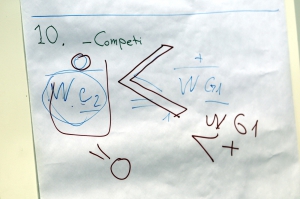 10. -Competi
+
W.C2 WG1
WG1
+